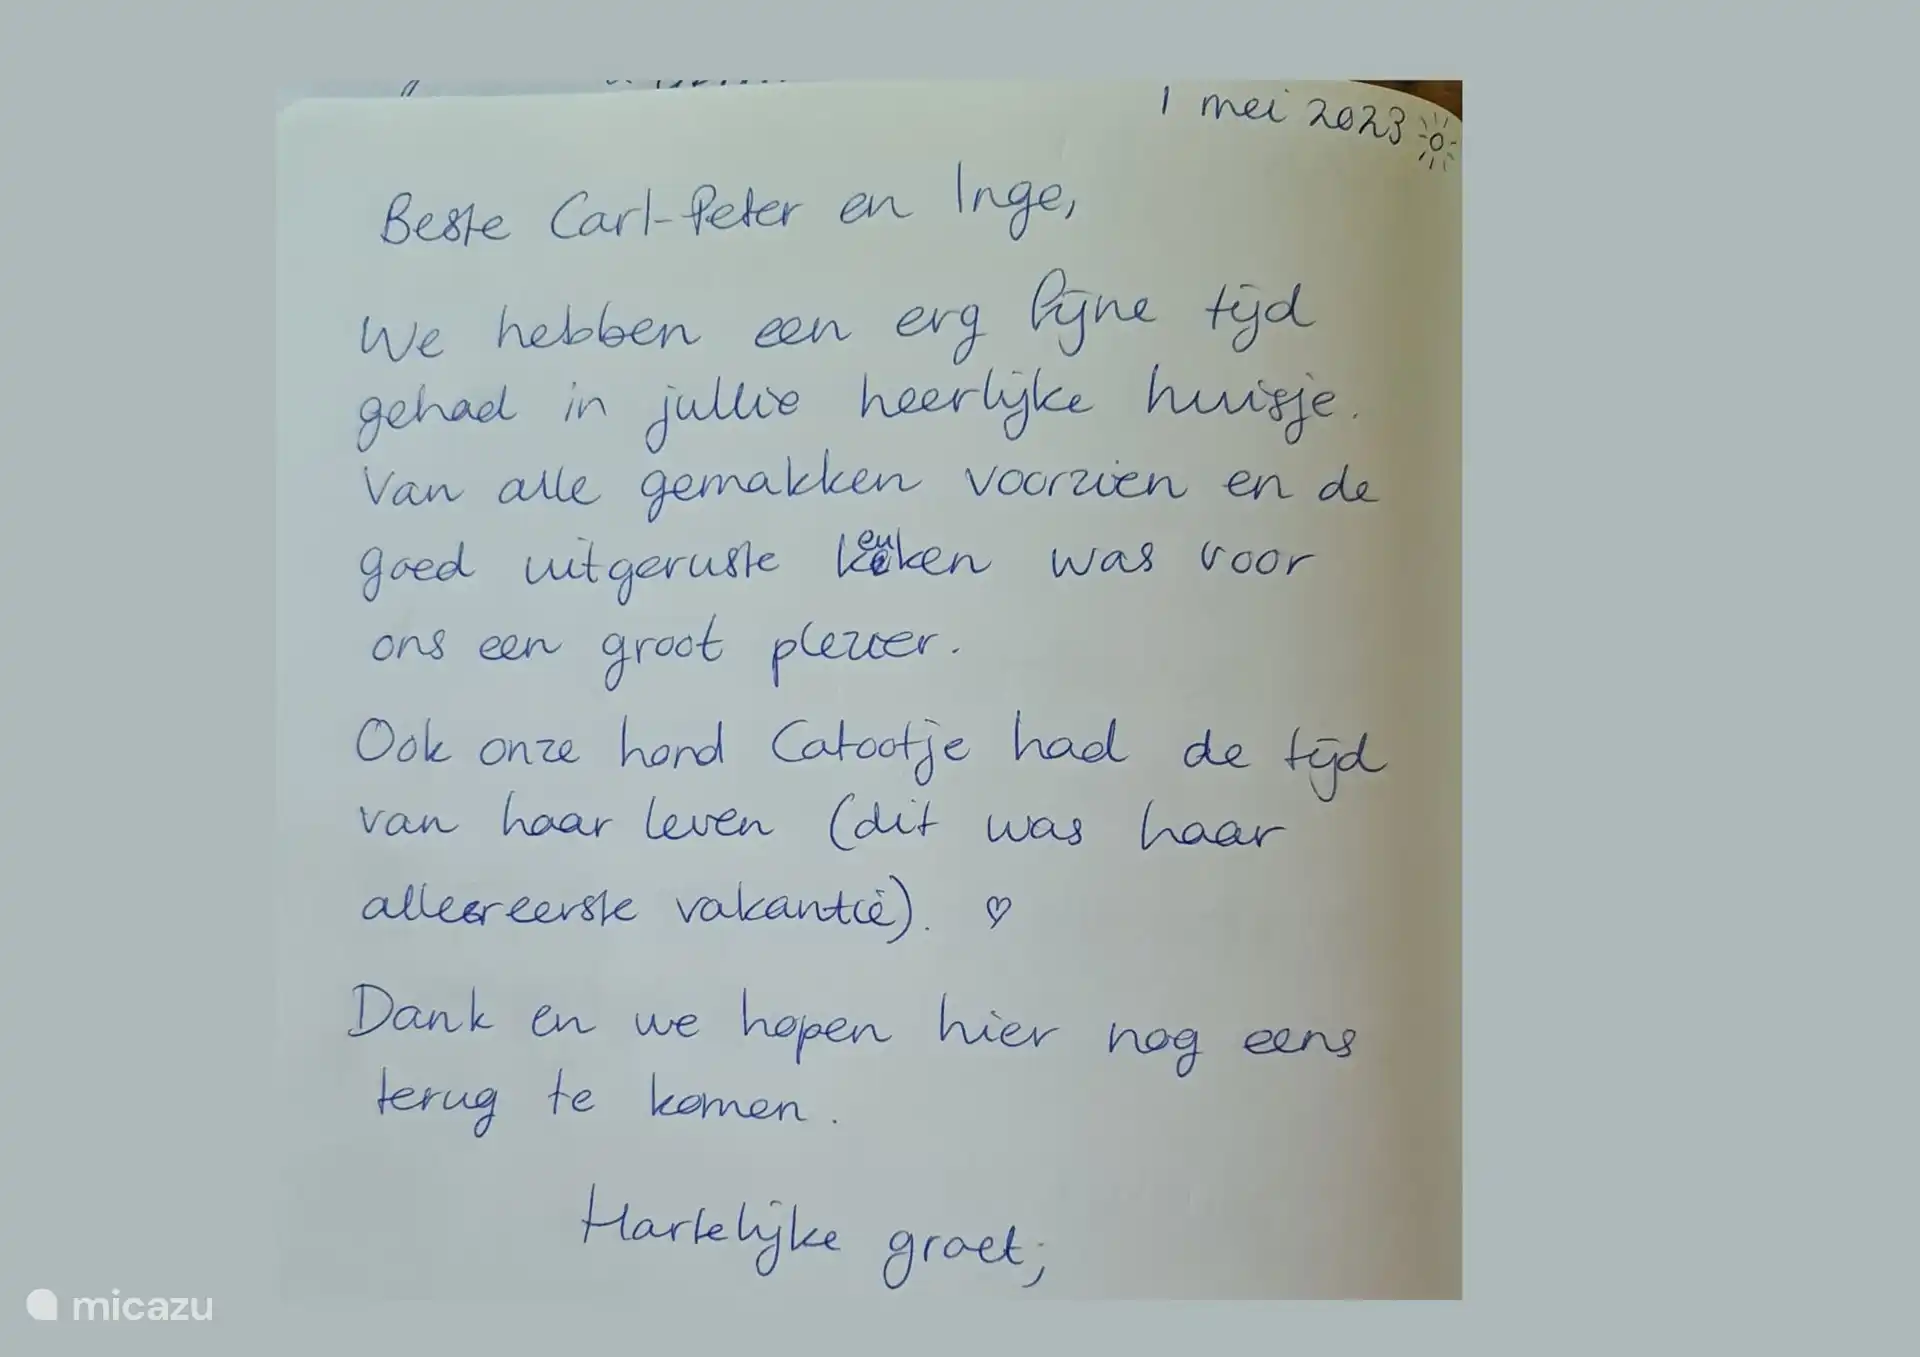 1 mei 2023
Beste Carl-Peter en Inge,
We hebben een erg fijne tijd
gehad in jullie heerlijke huisje.
Van alle gemakken voorzien en de
goed uitgeruste keuken was voor
ons een groot plezier.
Ook onze hond Catootje had de tijd
van haar leven (dit was haar
allereerste vakantie). ♡
Dank en we hopen hier nog eens
terug te komen.
Hartelijke groet;
micazu